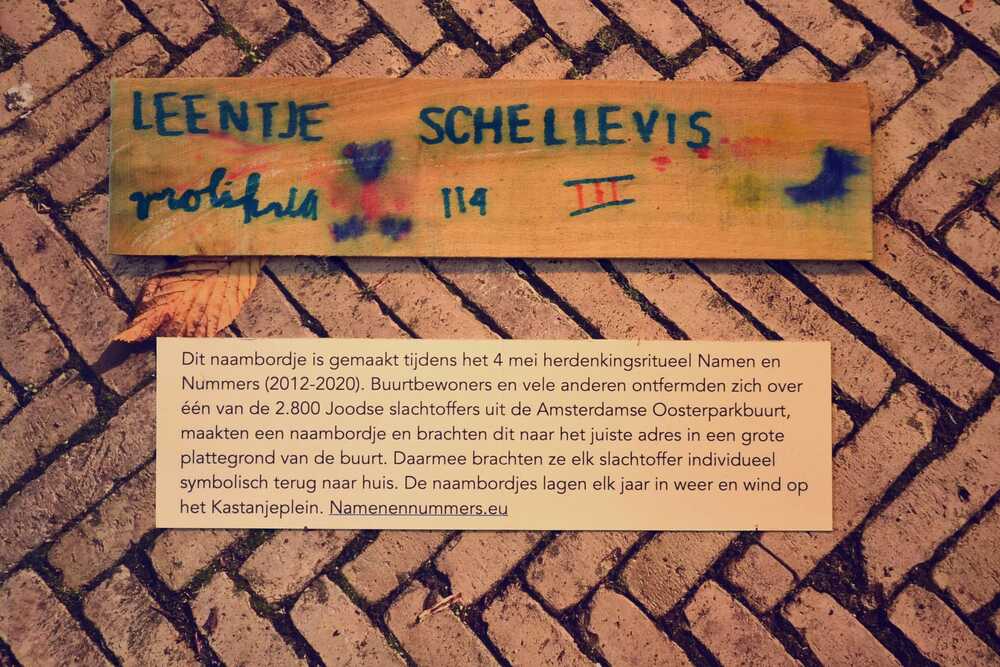 LEENTJE SCHELLEVIS
114 III
Dit naambordje is gemaakt tijdens het 4 mei herdenkingsritueel Namen en
Nummers (2012-2020). Buurtbewoners en vele anderen ontfermden zich over
één van de 2.800 Joodse slachtoffers uit de Amsterdamse Oosterparkbuurt,
maakten een naambordje en brachten dit naar het juiste adres in een grote
plattegrond van de buurt. Daarmee brachten ze elk slachtoffer individueel
symbolisch terug naar huis. De naambordjes lagen elk jaar in weer en wind op
het Kastanjeplein. Namenennummers.eu